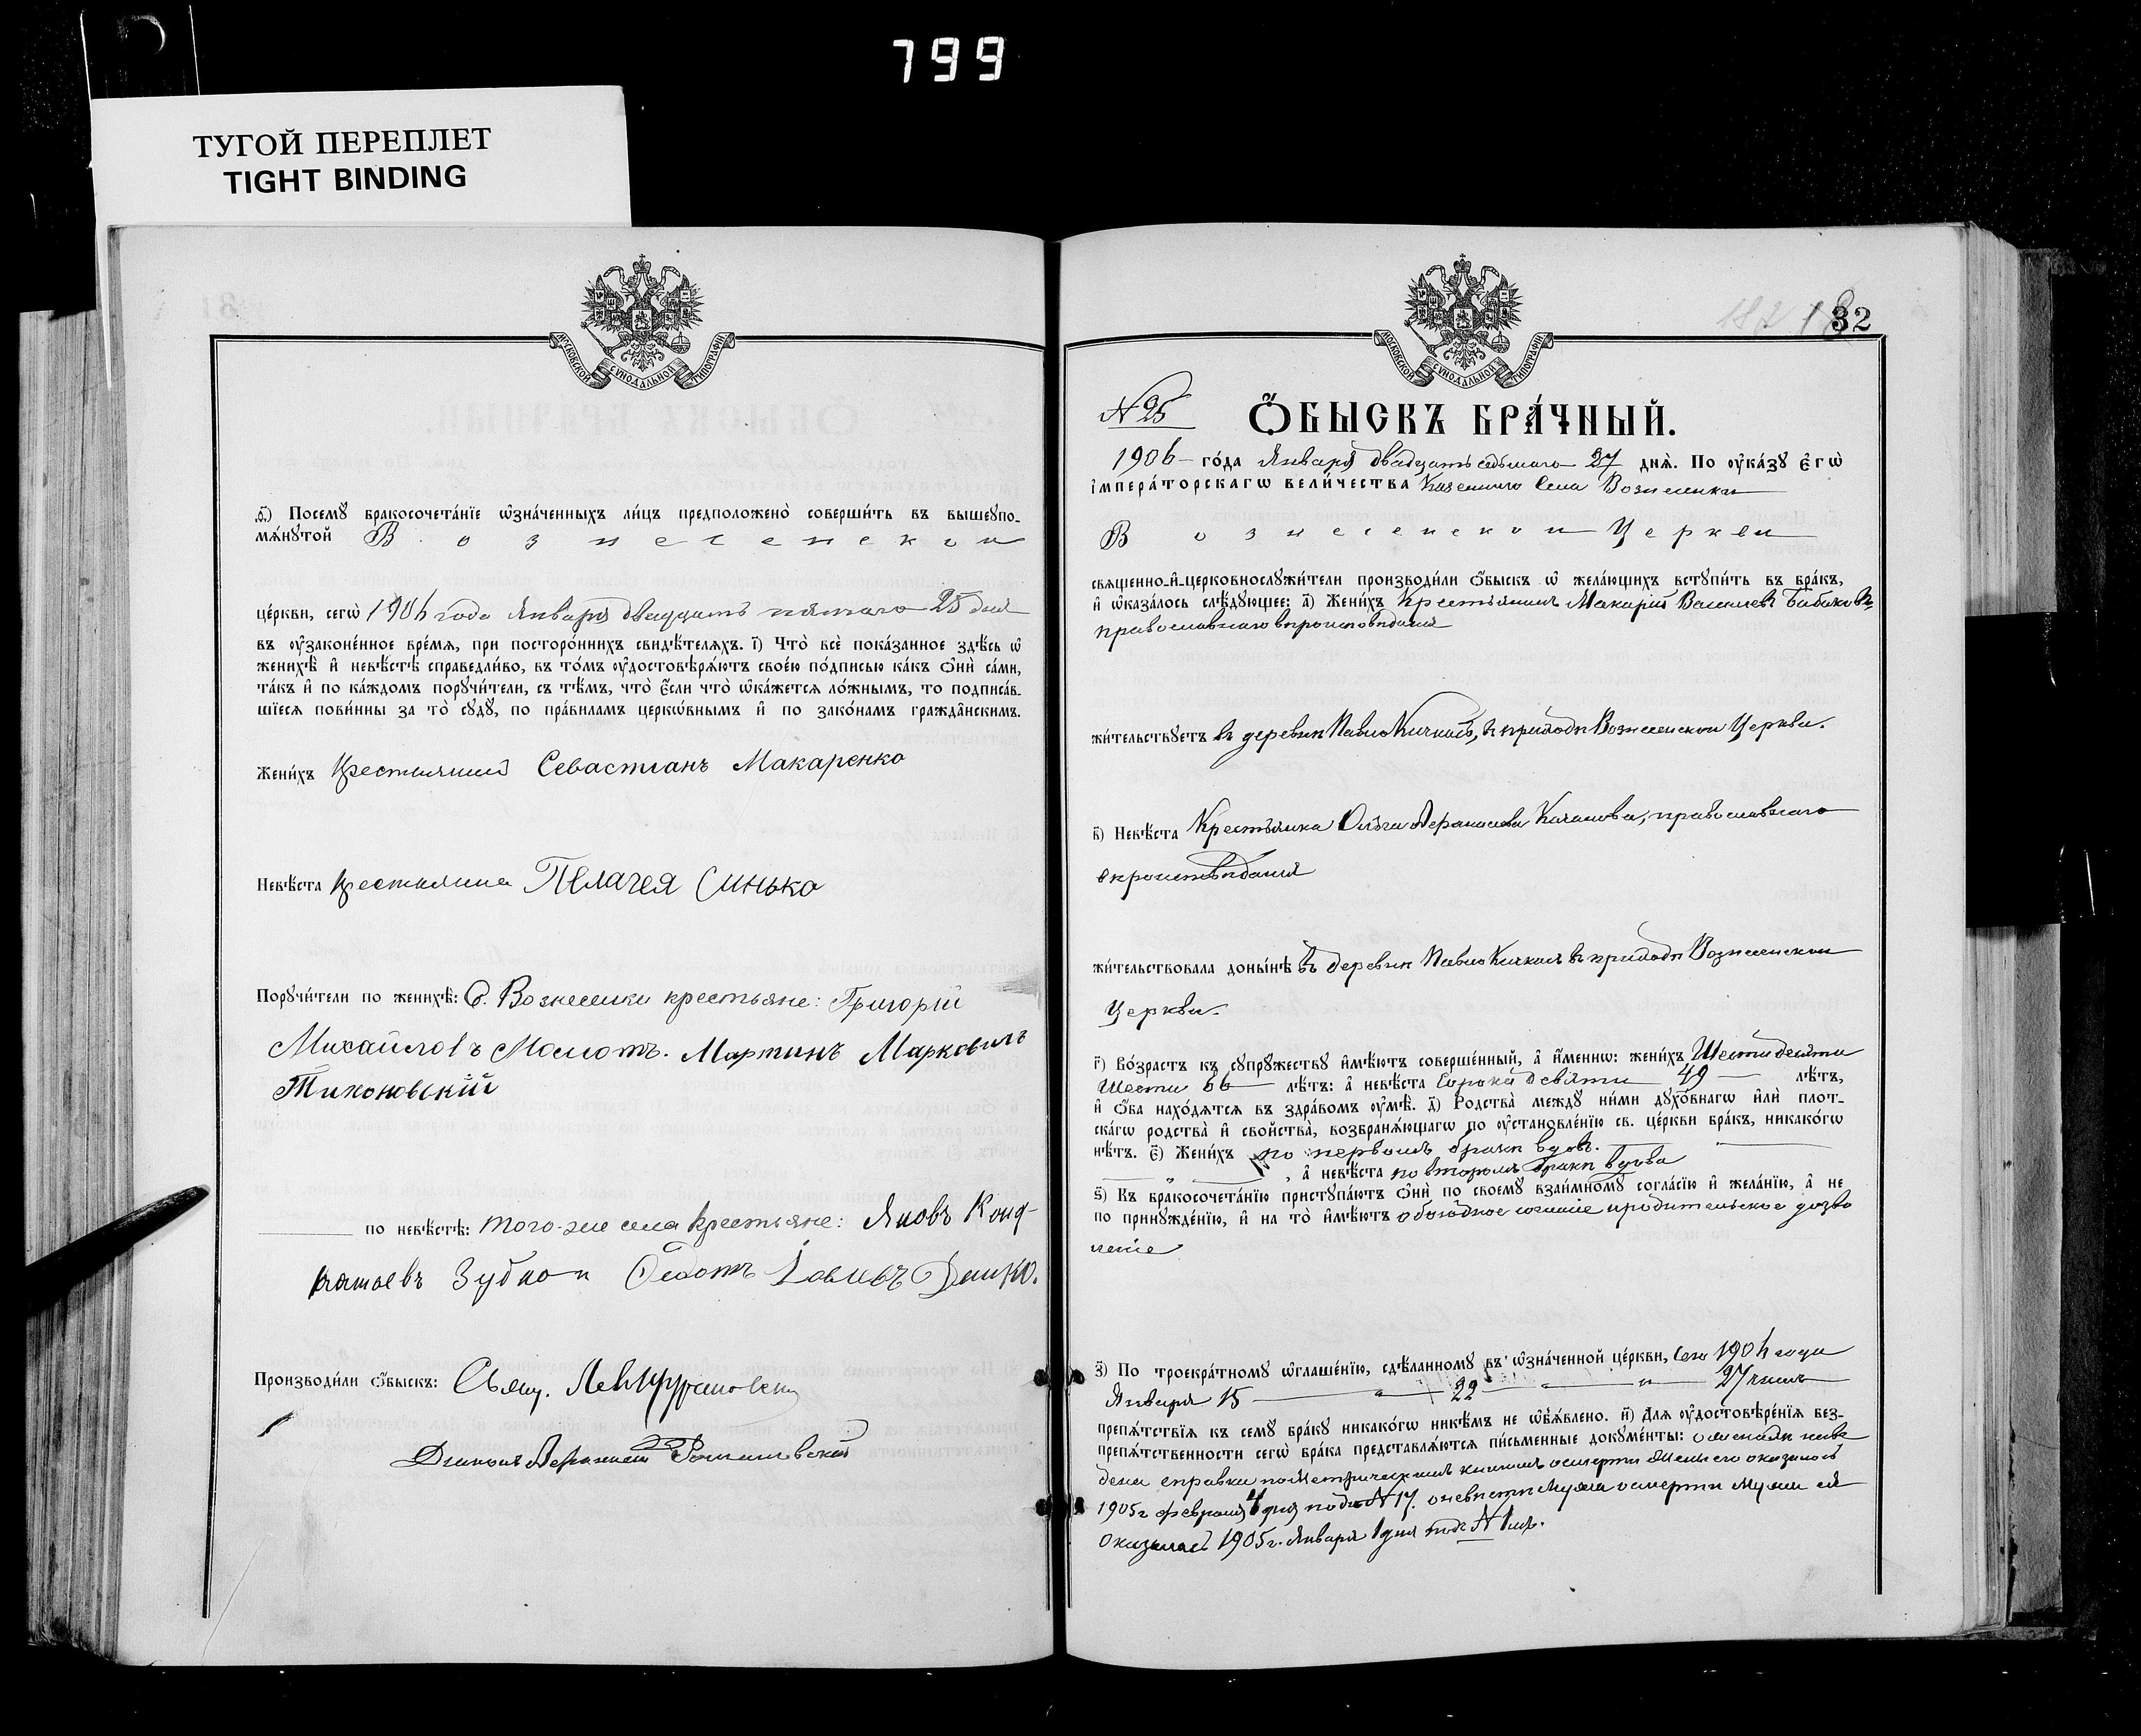 799
ТУГОЙ ПЕРЕПЛЕТ
TIGHT BINDING
МОСКОВСКОЙ СѴНОДАЛЬНОЙ ТИПОГРАФІИ
ѳ҃) Посемꙋ бракосочета́нїе ѡ҆зна́ченныхъ ли́цъ предположено̀ соверши́ть въ вышеꙋпо-
мѧ́нꙋтой Вознесенской
це́ркви, сегѡ̀ 1906 года Января двадцать пятаго 25 дня
въ ᲂу҆зако́ненное вре́мѧ, при посторо́ннихъ свидѣ́телѧхъ. і҃) Что̀ всѐ пока́занное здѣ́сь ѡ҆
женихѣ̀ и҆ невѣ́стѣ справедли́во, въ то́мъ ᲂу҆достовѣрѧ́ютъ свое́ю по́дписью ка́къ ѻ҆нѝ са́ми,
та́къ и҆ по ка́ждомъ порꙋчи́тели, съ тѣ́мъ, что̀ є҆́сли что̀ ѡ҆ка́жетсѧ ло́жнымъ, то подписа́в-
шїесѧ пови́нны за то̀ сꙋдꙋ̀, по пра́виламъ церко́внымъ и҆ по зако́намъ гражда́нскимъ.
Жени́хъ Крестьянинъ Севастианъ Макаренко
Невѣ́ста Крестьянка Пелагея Синько
Порꙋчи́тели по женихѣ̀: С. Вознесенки крестьяне: Григорій
Михайловъ Момотъ. Мартинъ Марковичъ
Тихоновскій
по невѣ́стѣ: того-же села крестьяне: Яковъ Конд-
ратьевъ Зубко и Ѳедотъ
Производи́ли ѻ҆́быскъ: Свящ. Левъ
Діаконъ
МОСКОВСКОЙ СѴНОДАЛЬНОЙ ТИПОГРАФІИ
182 182
N 25 Ѻ҆́БЫСКЪ БРА́ЧНЫЙ.
1906 го́да Января двадцать седьмаго 27 днѧ̀. По ᲂу҆ка́зꙋ є҆гѡ̀
і҆мпера́торскагѡ вели́чества Казеннаго Села Вознесенки
Вознесенской Церкви
свѧще́нно-и҆-церковнослꙋжи́тели производи́ли ѻ҆́быскъ ѡ҆ жела́ющихъ встꙋпи́ть въ бра́къ,
и҆ ѡ҆каза́лось слѣ́дꙋющее: а҃) Жени́хъ Крестьянинъ Макарій Васильевъ Бабаковъ,
православнаго вѣроисповѣданія
жи́тельствꙋетъ въ деревни Павло Кичкасъ, въ приходѣ Вознесенской Церкви.
в҃) Невѣ́ста Крестьянка Ольга Аѳанасьева православнаго
вѣроисповѣданія
жи́тельствовала доны́нѣ въ деревни Павло Кичкасъ въ приходѣ Вознесенской
Церкви.
г҃) Во́зрастъ къ сꙋпрꙋ́жествꙋ и҆мѣ́ютъ соверше́нный, а҆ и҆́меннѡ: жени́хъ Шестидесяти
Шести 66 лѣ́тъ: а҆ невѣ́ста Сорока девяти 49 лѣ́тъ,
и҆ ѻ҆́ба нахо́дѧтсѧ въ здра́вомъ ᲂу҆мѣ̀. д҃) Родства̀ междꙋ̀ ни́ми дꙋхо́внагѡ и҆лѝ плот-
ска́гѡ родства̀ и҆ сво́йства, возбранѧ́ющагѡ по ᲂу҆становле́нїю св. це́ркви бра́къ, никако́гѡ
нѣ́тъ. є҃) Жени́хъ по первомъ бракѣ вдовъ.
, а҆ невѣ́ста по второмъ бракѣ вдова
ѕ҃) Къ бракосочета́нїю пристꙋпа́ютъ ѻ҆нѝ по своемꙋ̀ взаи́мномꙋ согла́сїю и҆ жела́нїю, а҆ не
по принꙋжде́нїю, и҆ на то̀ и҆мѣ́ютъ обоюдное согласіе и родительское дозво
леніе
з҃) По троекра́тномꙋ ѡ҆глаше́нїю, сдѣ́ланномꙋ въ ѡ҆зна́ченной це́ркви, Сего 1906 года
Января 15 " 22 " 27 чиселъ
препѧ́тствїѧ къ семꙋ̀ бра́кꙋ никако́гѡ никѣ́мъ не ѡ҆б̾ѧ́влено. и҃) Длѧ ᲂу҆достовѣре́нїѧ без-
препѧ́тственности сегѡ̀ бра́ка представлѧ́ютсѧ пи́сьменные докꙋме́нты: о женихѣ наве
дена справка по Метрическимъ книгамъ о смерти Жены его оказалось
1905 г. февраля 4 дня подъ N 17. о невѣсти о смерти Мужа ея
оказалось 1905 г. Января 1 дня подъ N 1мъ.